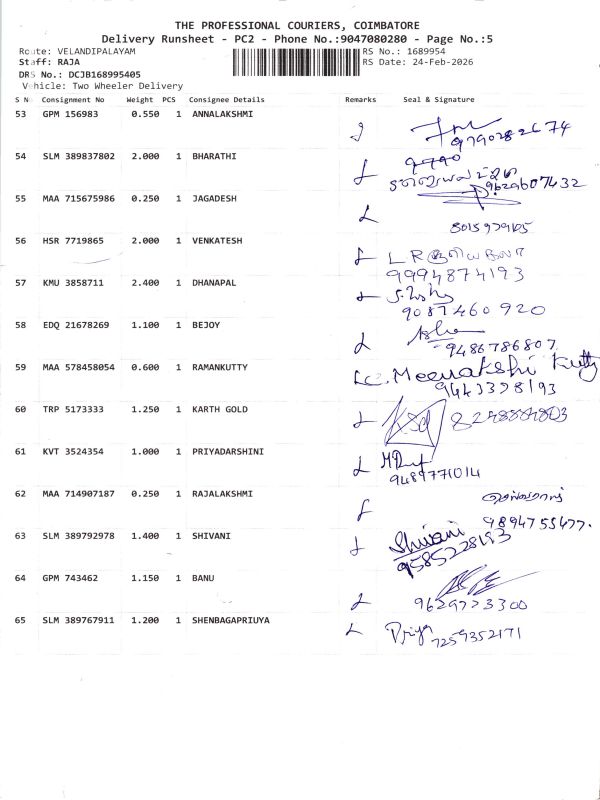 THE PROFESSIONAL COURIERS, COIMBATORE
Delivery Runsheet - PC2 - Phone No.:9047080280 - Page No.:5
Route: VELANDIPALAYAM RS No.: 1689954
Staff: RAJA RS Date: 24-Feb-2026
DRS No.: DCJB168995405
Vehicle: Two Wheeler Delivery
S No Consignment No Weight PCS Consignee Details Remarks Seal & Signature
53 GPM 156983 0.550 1 ANNALAKSHMI
9790282674
54 SLM 389837802 2.000 1 BHARATHI
9629607432
55 MAA 715675986 0.250 1 JAGADESH
56 HSR 7719865 2.000 1 VENKATESH
9994874193
57 KMU 3858711 2.400 1 DHANAPAL
9087460920
58 EDQ 21678269 1.100 1 BEJOY
9486786807
59 MAA 578458054 0.600 1 RAMANKUTTY
Meenakshi Kutty
9443398193
60 TRP 5173333 1.250 1 KARTH GOLD
61 KVT 3524354 1.000 1 PRIYADARSHINI
9489771014
62 MAA 714907187 0.250 1 RAJALAKSHMI
9894755477.
63 SLM 389792978 1.400 1 SHIVANI
Shivani
9585228193
64 GPM 743462 1.150 1 BANU
9629723300
65 SLM 389767911 1.200 1 SHENBAGAPRIUYA
Priya 7259352171